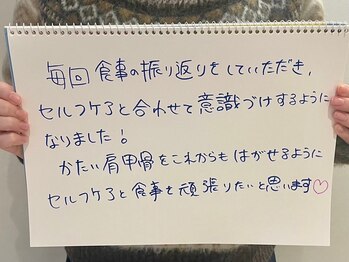 毎回食事の振り返りをしていただき、
セルフケアと合わせて意識づけするように
なりました!
かたい肩甲骨をこれからもはがせるように
セルフケアと食事を頑張りたいと思います♡